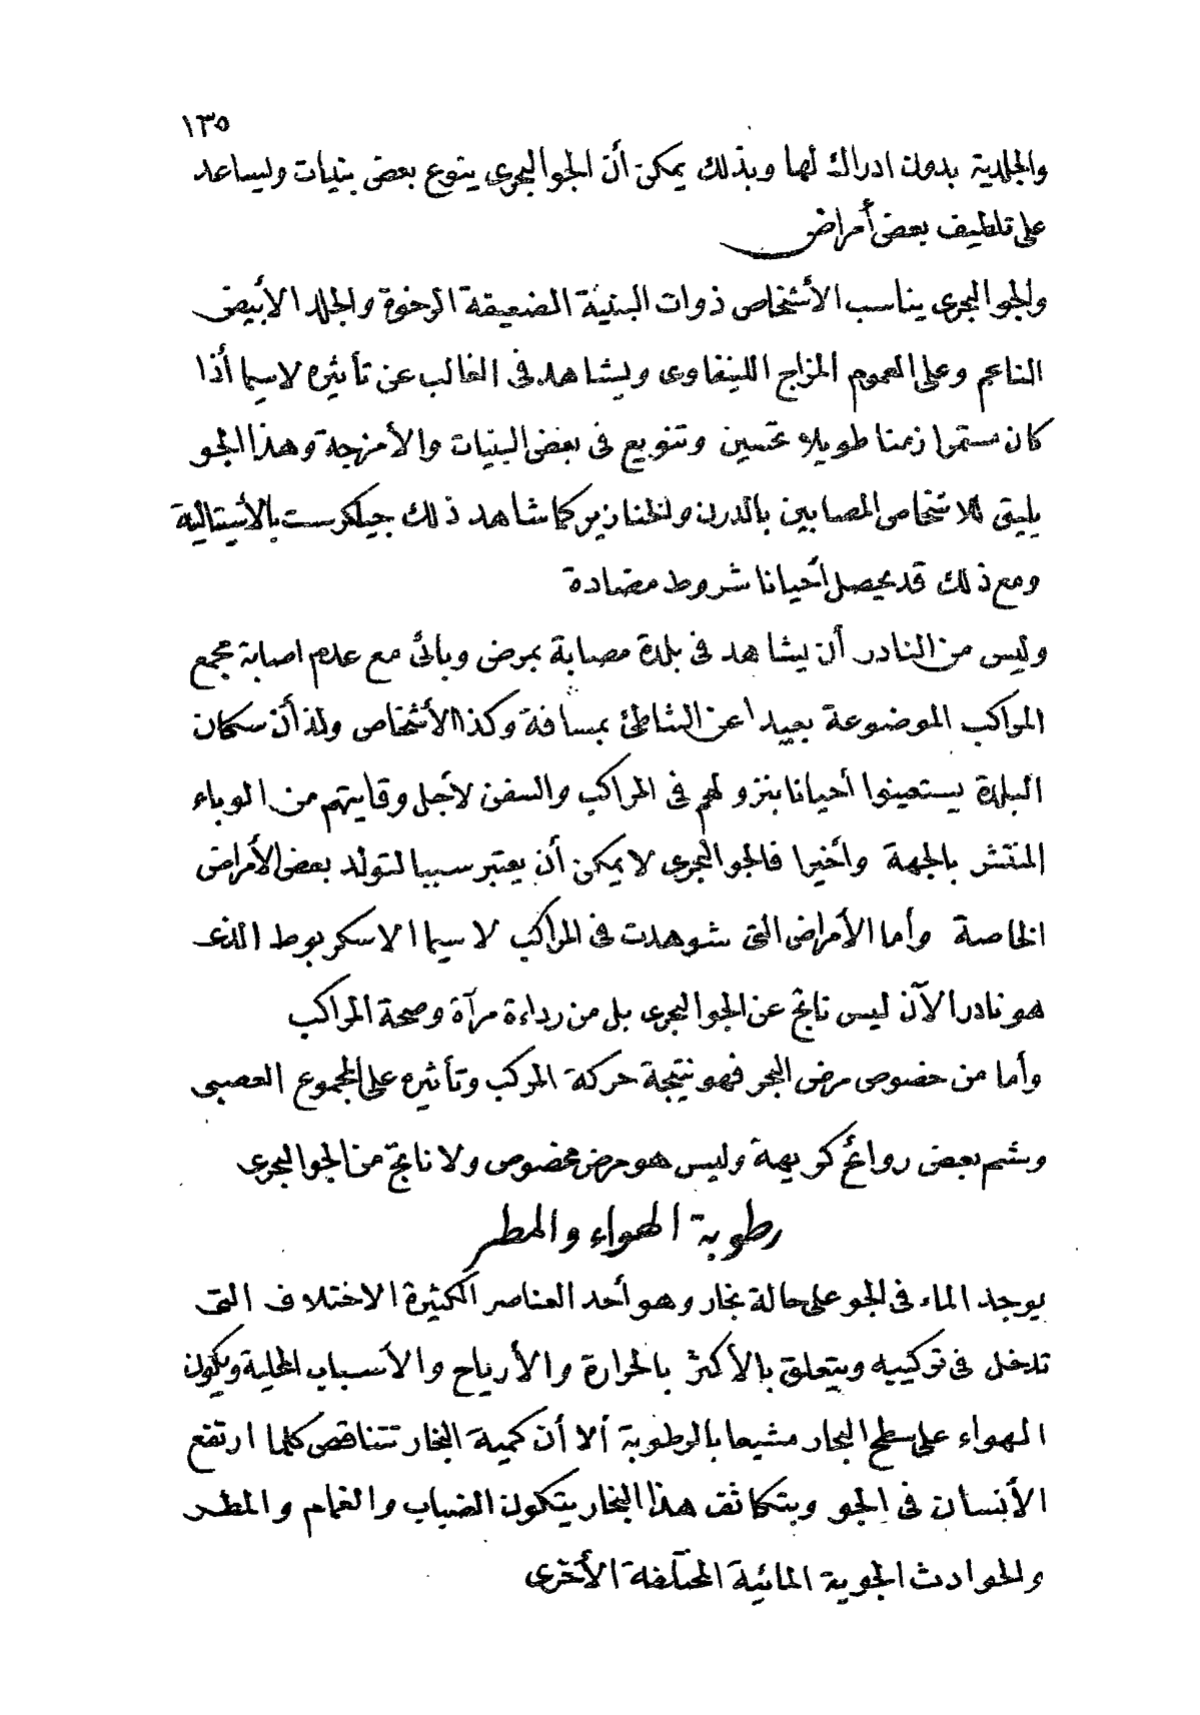 ١٣٥
والجلدية بدون ادراك لها وبذلك يمكن أن الجو البحرى ينوع بعض بنيات وليساعد
على تلطيف بعض أمراض
والجو البحرى يناسب الأشخاص ذوات البنية الضعيفة الرخوة والجلد الأبيض
الناعم وعلى العموم المزاج اللينفاوى ويشاهد فى الغالب عن تأثيره لاسيما أذا
كان مستمرا زمنا طويلا تحسين وتنويع فى بعض البنيات والأمزجة وهذا الجو
يليق للاشخاص المصابين بالدرن والخنازير كما شاهد ذلك جيلكرست بالأسبتالية
ومع ذلك قد يحصل أحيانا شروط مضادة
وليس من النادر أن يشاهد فى بلدة مصابة بمرض وبائى مع عدم اصابة مجمع
المراكب الموضوعة بعيدا عن الشاطئ بمسافة وكذا الأشخاص ولذ أن سكان
البلدة يستعينوا أحيانا بنزولهم فى المراكب والسفن لأجل وقايتهم من الوباء
المنتشر بالجهة وأخيرا فالجو البحرى لا يمكن أن يعتبر سببا لتولد بعض الأمراض
الخاصة وأما الأمراض التى شوهدت فى المراكب لاسيما الاسكربوط الذى
هو نادر الآن ليس ناتج عن الجو البحرى بل من رداءة مرآة وصحة المراكب
وأما من خصوص مرض البحر فهو نتيجة حركة المركب وتأثيره على المجموع العصبى
وشم بعض روائح كريهة وليس هو مرض مخصوص ولا ناتج من الجو البحرى
رطوبة الهواء والمطر
يوجد الماء فى الجو على حالة بخار وهو أحد العناصر الكثيرة الاختلاف التى
تدخل فى تركيبه ويتعلق بالأكثر بالحرارة والأرياح والأسباب المحلية ويكون
الهواء على سطح البحار مشبعا بالرطوبة ألا أن كمية البخار تتناقص كلما ارتفع
الأنسان فى الجو وبتكاثف هذا البخار يتكون الضباب والغمام والمطر
والحوادث الجوية المائية المختلفة الأخرى